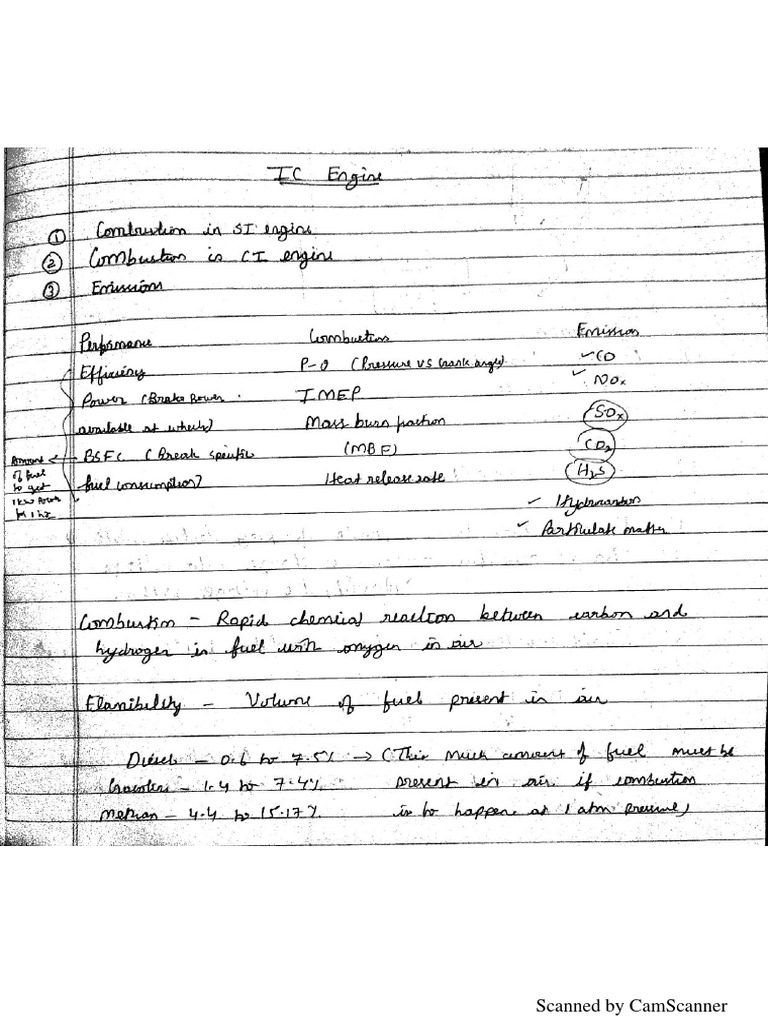 IC Engine
① Combustion in SI engine
② Combustion in CI engine
③ Emissions
Performance Combustion Emission
Efficiency P-θ (Pressure vs Crank angle) ✓ CO
Power (Brake power IMEP ✓ NOx
available at wheels) Mass burn fraction SOx
BSFC (Break specific (MBF) CO2
fuel consumption) Heat release rate H2S
Amount
of fuel
to get
1 kW Power
for 1 hr
✓ Hydrocarbon
✓ Particulate matter
Combustion - Rapid chemical reaction between carbon and
hydrogen in fuel with oxygen in air
Flamibility - Volume of fuel present in air
Diesel - 0.6 to 7.5% → (This much amount of fuel must be
Gasoline - 1.4 to 7.4% present in air if combustion
Methan - 4.4 to 15.17% is to happen at 1 atm pressure)
Scanned by CamScanner